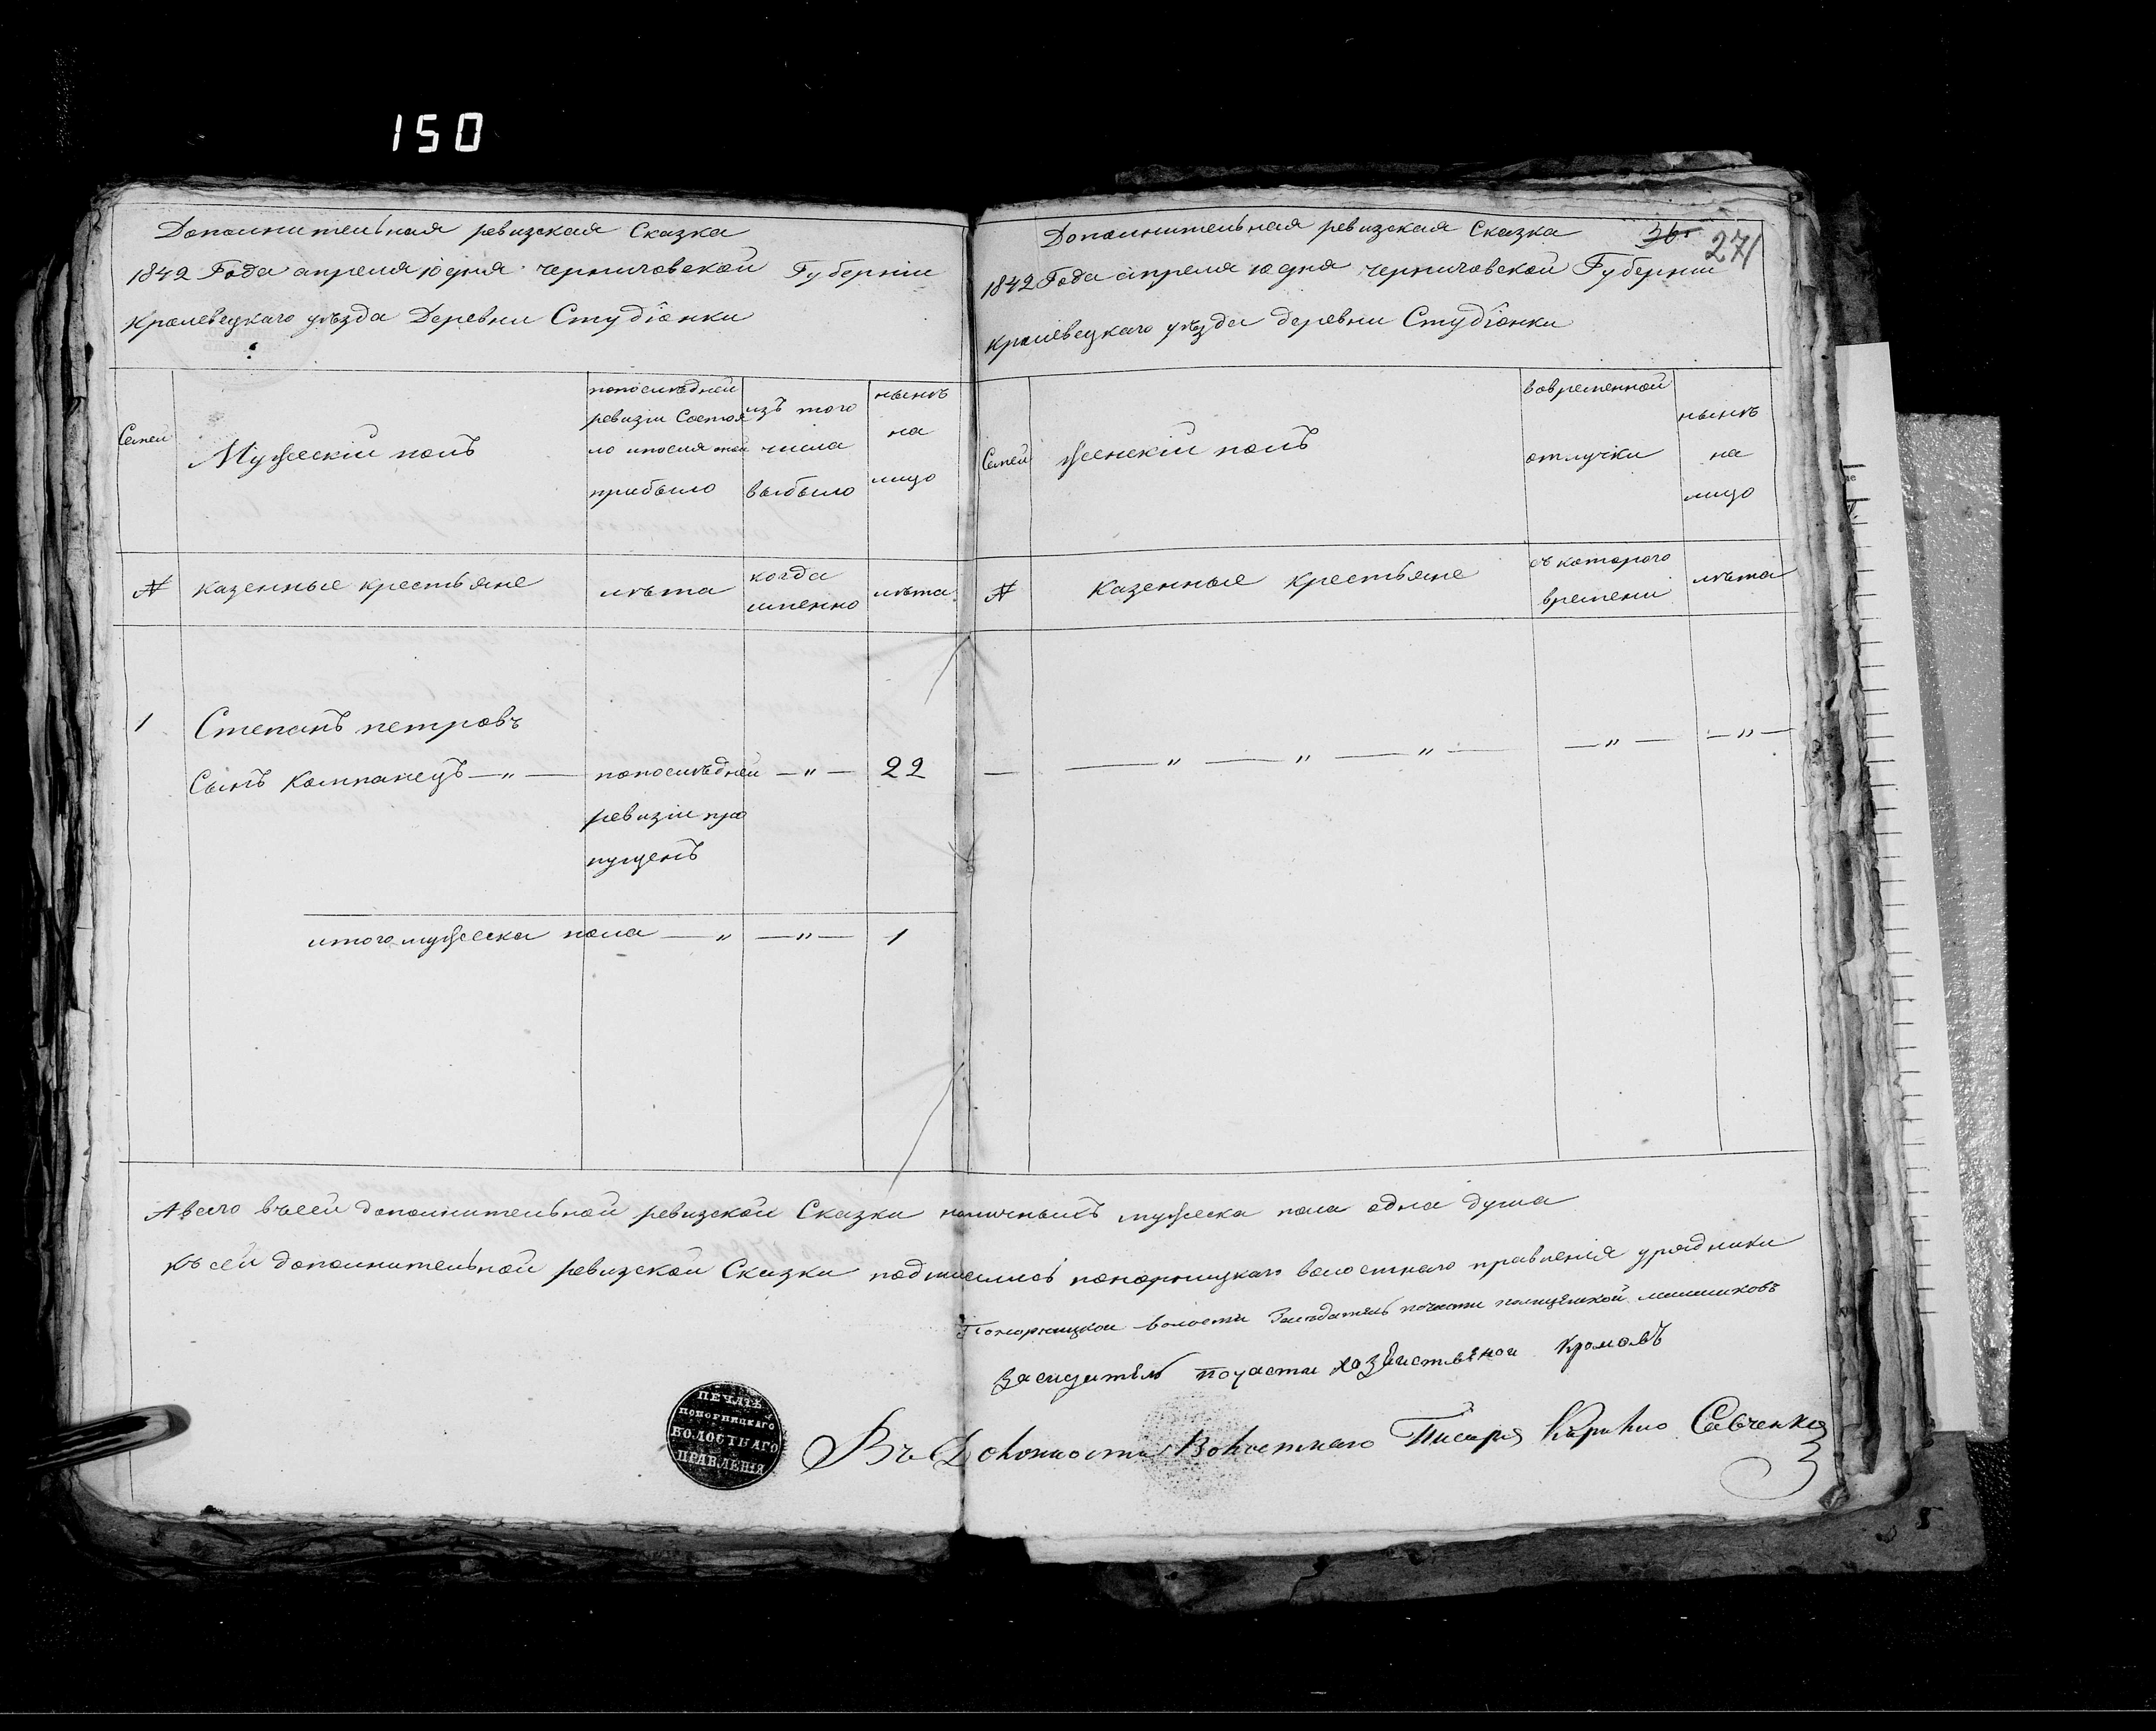 150
Дополнительная ревизская Сказка
1842 Года апреля 10 дня черниговской Губернии
Кролевецкаго уѣзда Деревни Студіонки
Семей
Мужескій полъ
попослѣдней
ревизіи Состоя
ло ипослѣ того
прибыло
изъ того
числа
выбыло
нынѣ
на
лицо
№
казенные крестьяне
лѣта
когда
именно
лѣта
1
Степанъ петровъ
Сынъ Компанецъ — „ —
попослѣдней
ревизіи про
пущенъ
— „ —
22
итого мужеска пола — „ — „ — 1
Дополнительная ревизская Сказка
36
271
1842 Года апреля 10 дня черниговской Губернии
кролевецкаго уѣзда деревни Студіонки
Семей
женскій полъ
вовременной
отлучки
нынѣ
на
лицо
№
Казенные крестьяне
съ котораго
времени
лѣта
— — „ — „ — „ — — „ — — „ —
Авсего въсей дополнительной ревизской Сказки наличныхъ мужеска пола одна душа
Къ сей дополнительной ревизской Сказки подписались понорницкаго волостнаго правленія урядники
Понорницкой волости Засѣдатель почасти полицейской
засидитель почасти хозяиственой
ПЕЧАТЬ
ПОНОРНИЦКАГО
ВОЛОСТНАГО
ПРАВЛЕНІЯ
Въ Должности Волостнаго Писаря Кирило Савченко